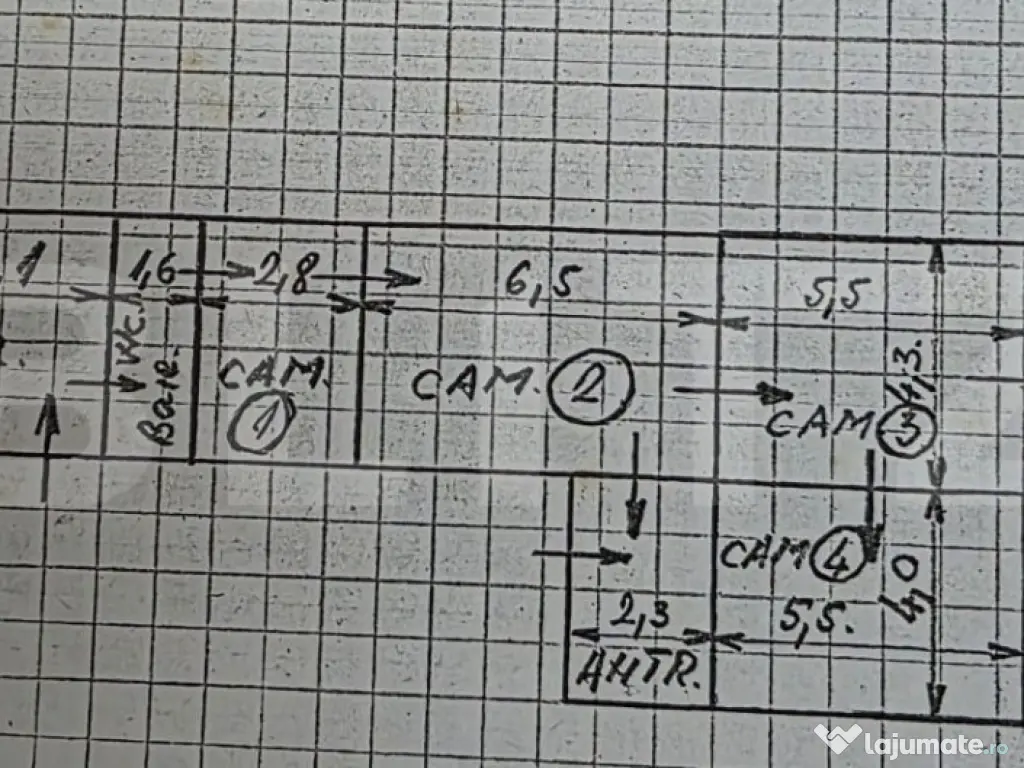 1
1,6
2,8
6,5
5,5
WC.
Baie.
CAM.
1
CAM.
2
CAM
3
4,3.
CAM
4
4,0
2,3
5,5.
AHTR.
lajumate.ro